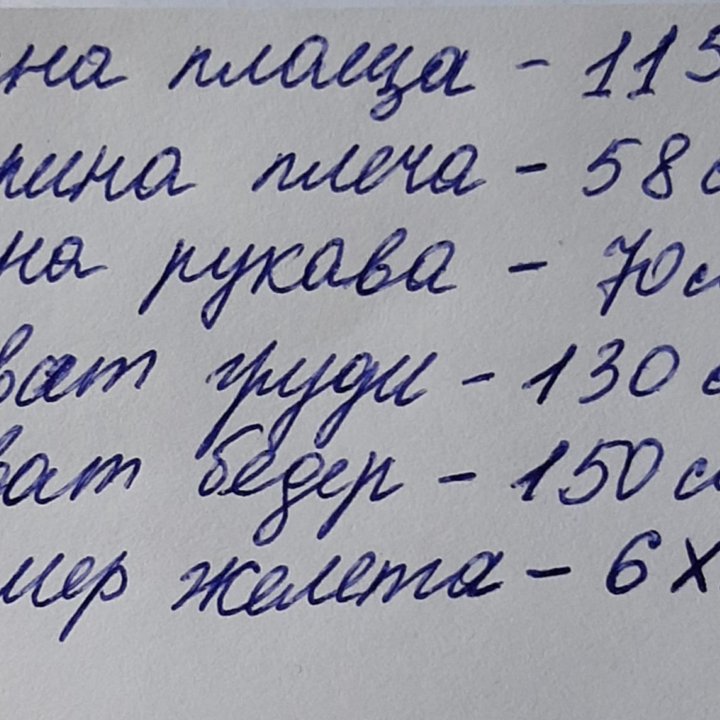 на плаща - 115
рина плеча - 58 с
на рукава - 70 см
ват груди - 130 с
ват бедер - 150 см
мер жилета - 6 X